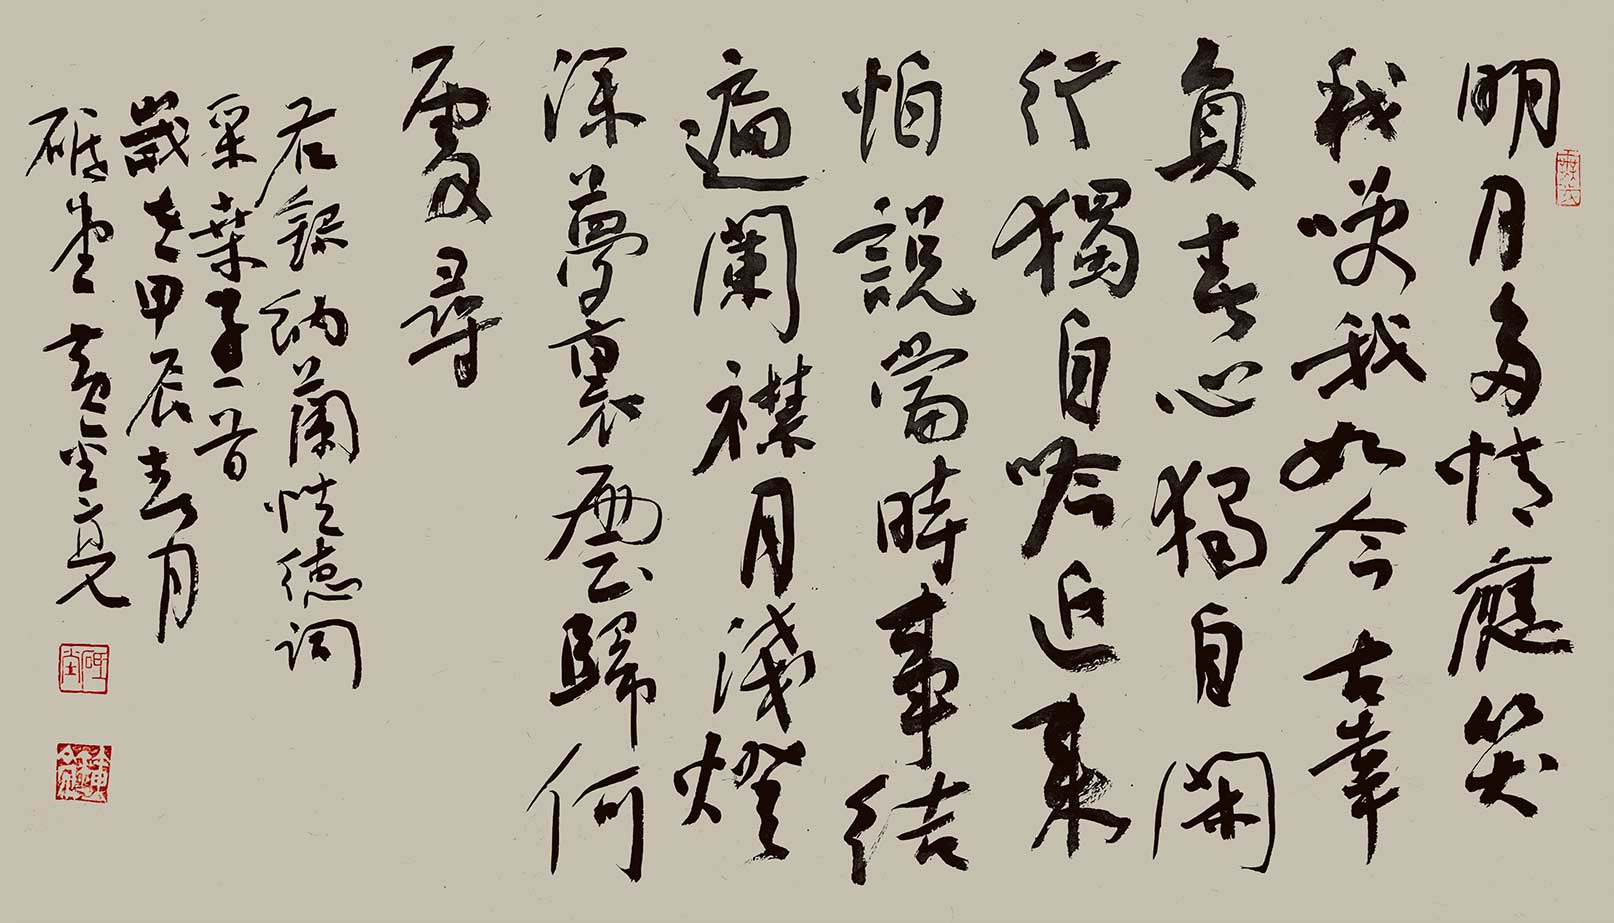 明月多情應笑
我咲我如今辜
負春心獨自閑
行獨自吟近來
怕說當時事結
遍闌襟月淺燈
深夢裏雲歸何
處尋
右錄納蘭性德詞
采桑子一首
歲在甲辰春月
堂黃亮